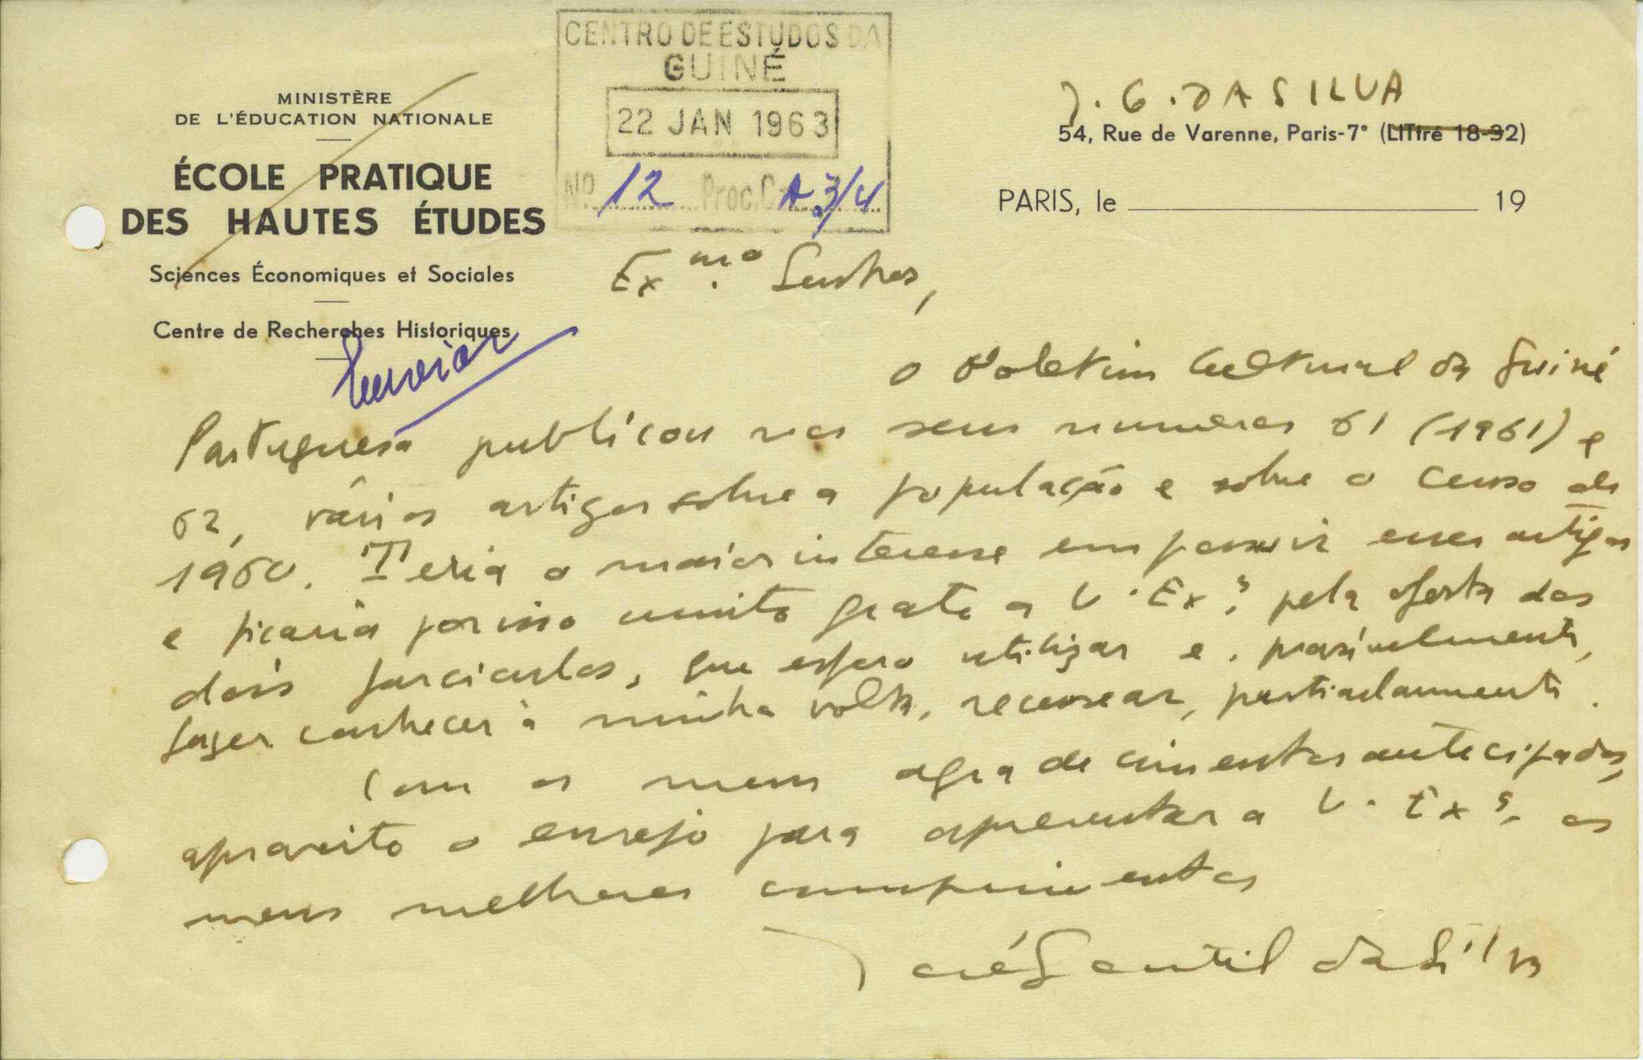 MINISTÈRE
DE L'ÉDUCATION NATIONALE
ÉCOLE PRATIQUE
DES HAUTES ÉTUDES
Sciences Économiques et Sociales
Centre de Recherches Historiques
Enviar
CENTRO DE ESTUDOS DA
GUINÉ
22 JAN 1963
Nº. 12 Proc. C A.3/4
J. G. DA SILVA
54, Rue de Varenne, Paris-7e (LITtré 18-32)
PARIS, le 19
Ex.mo Senhor,
O Boletim Cultural da Guiné
Portuguesa publicou nos seus numeros 61 (1961) e
62, vários artigos sobre a população e sobre o censo de
1960. Teria o maior interesse em possuir esses artigos
e ficaria por isso muito grato a V. Ex.ª pela oferta dos
dois fascículos, que espero utilizar e, possívelmente,
fazer conhecer à minha volta, recensear, particularmente.
Com os meus agradecimentos antecipados,
aproveito o ensejo para apresentar a V. Exª. os
meus melhores cumprimentos
José Gentil da Silva